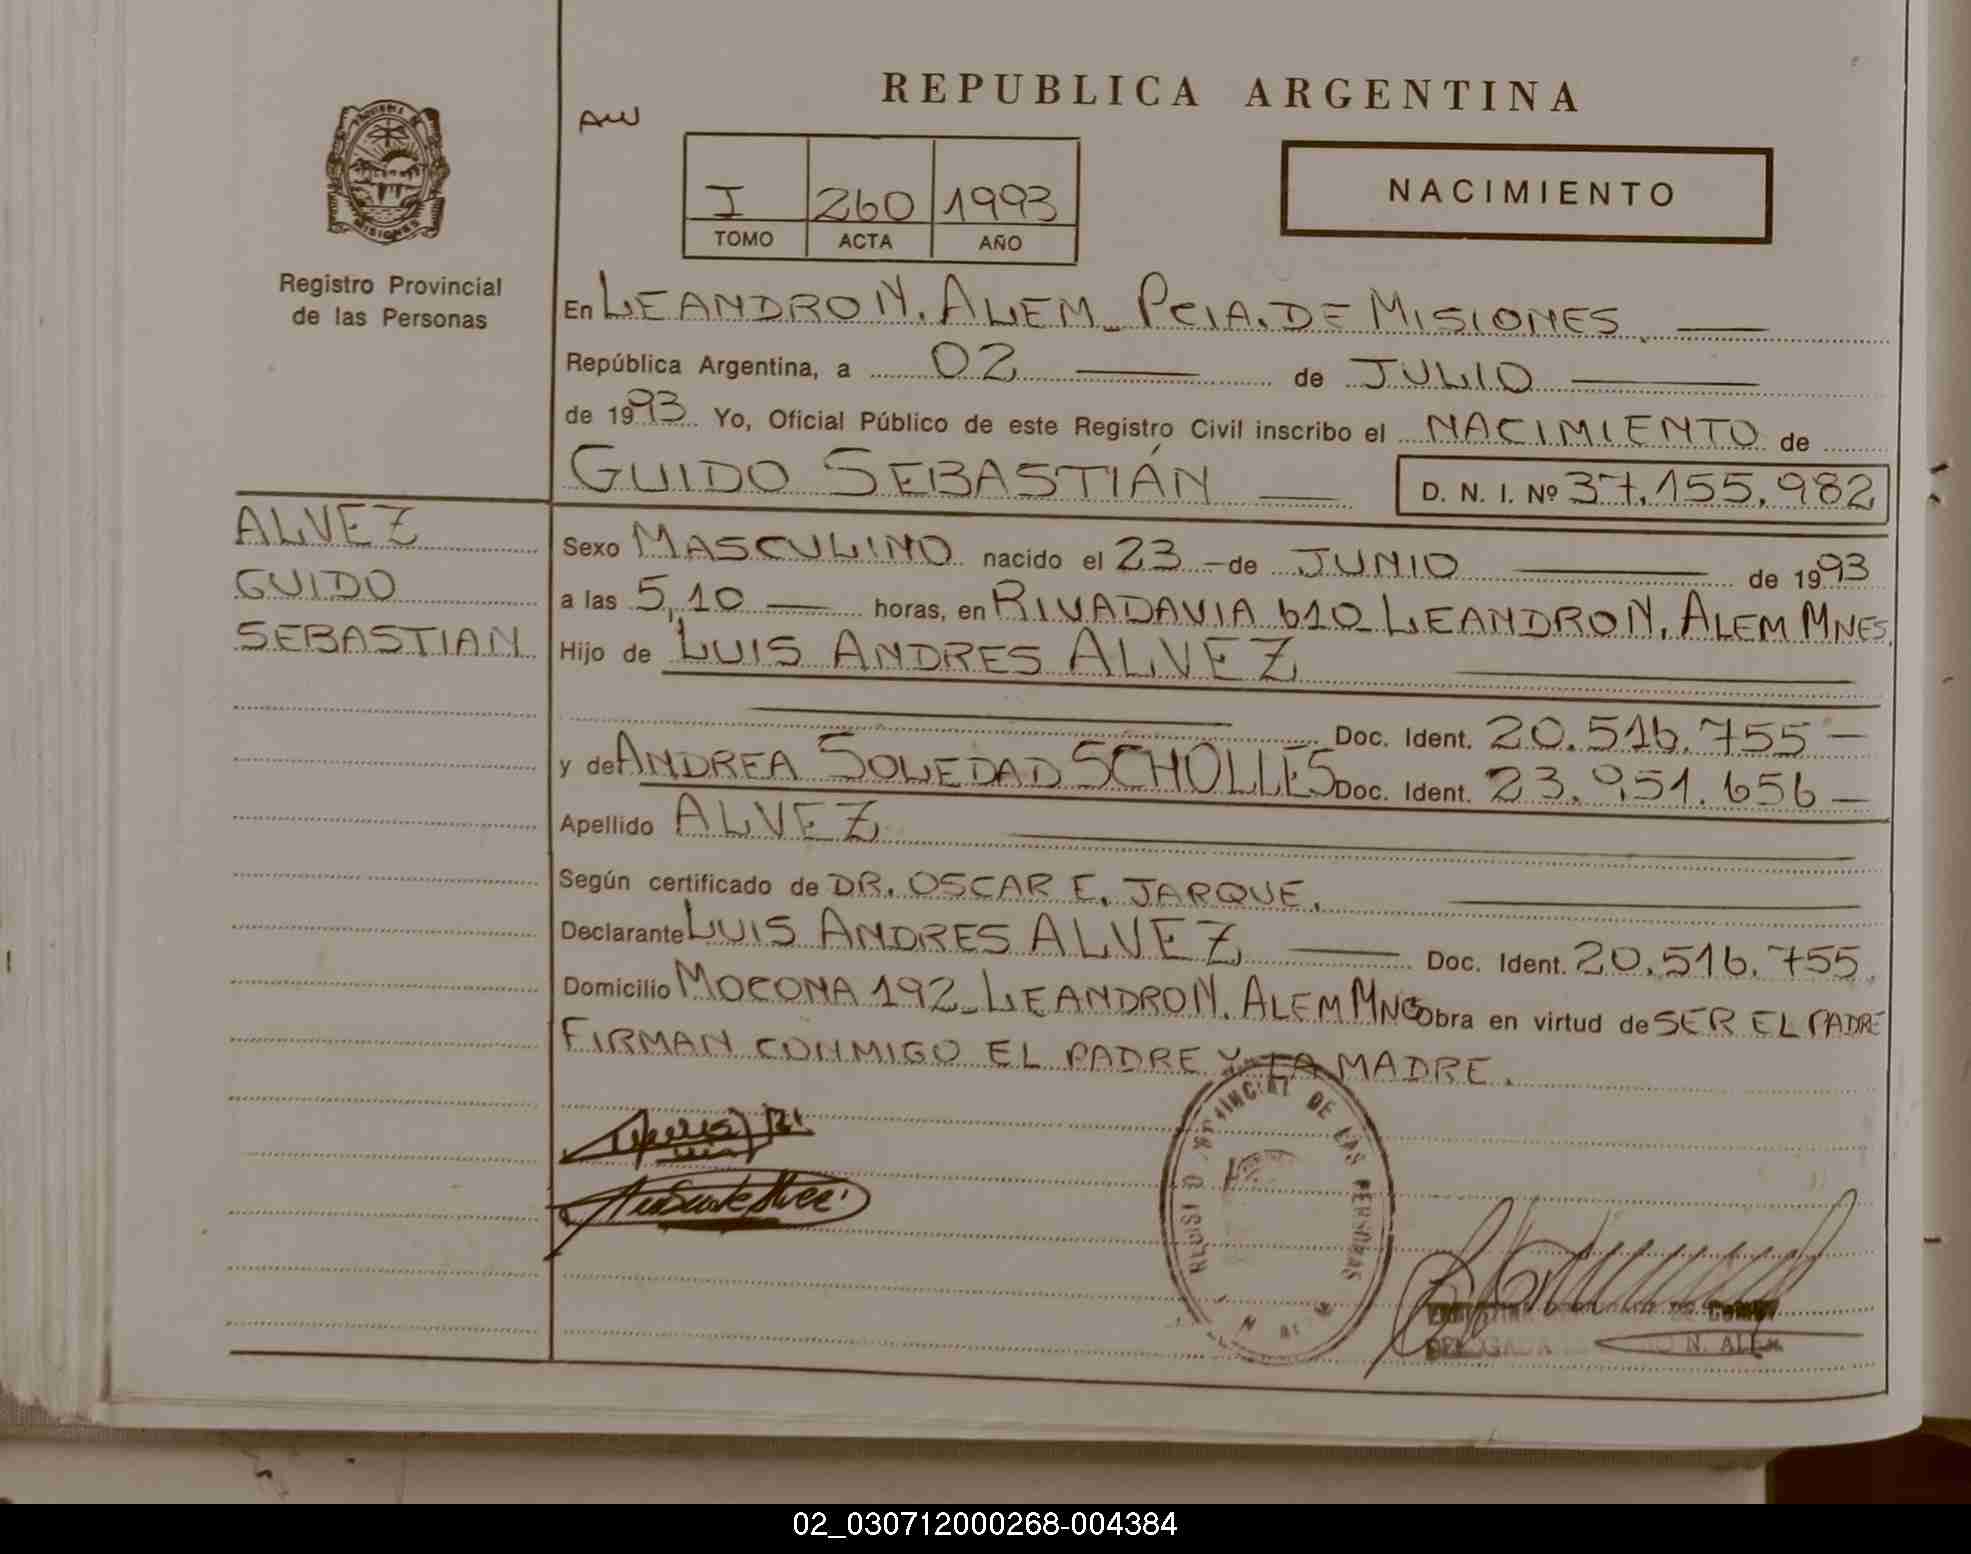 REPUBLICA ARGENTINA
AW
I 260 1993
TOMO ACTA AÑO
NACIMIENTO
MISIONES
Registro Provincial
de las Personas
En LEANDRO N. ALEM_ PCIA. DE MISIONES
República Argentina, a 02 de JULIO
de 1993 Yo, Oficial Público de este Registro Civil inscribo el NACIMIENTO de
GUIDO SEBASTIÁN D. N. I. Nº 37.155.982
ALVEZ
GUIDO
SEBASTIAN
Sexo MASCULINO nacido el 23 - de JUNIO de 1993
a las 5,10 horas, en RIVADAVIA 610_ LEANDRO N. ALEM MNES.
Hijo de LUIS ANDRES ALVEZ
Doc. Ident. 20.516.755 -
y de ANDREA SOLEDAD SCHOLLES Doc. Ident. 23.951.656 -
Apellido ALVEZ
Según certificado de DR. OSCAR E. JARQUE.
Declarante LUIS ANDRES ALVEZ Doc. Ident. 20.516.755.
Domicilio MOCONA 192_ LEANDRO N. ALEM MNES Obra en virtud de SER EL PADRE
FIRMAN CONMIGO EL PADRE Y LA MADRE.
REGISTRO PROVINCIAL DE LAS PERSONAS
DELEGADA N. ALEM
02_030712000268-004384